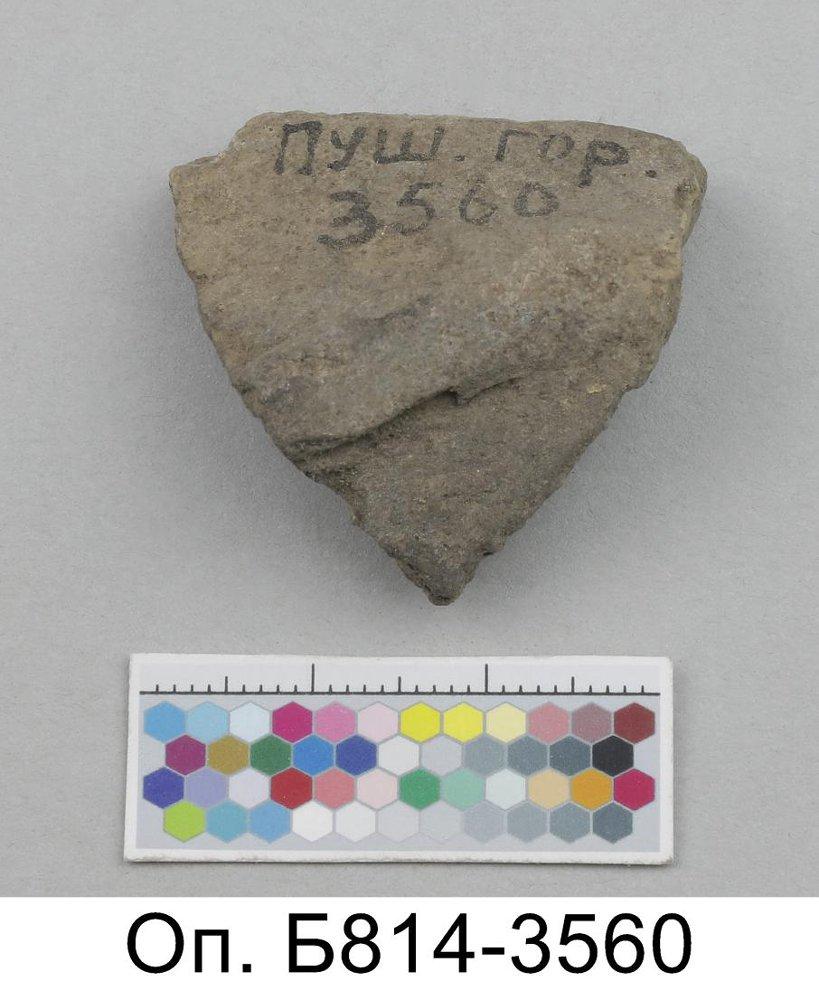 Пуш. гор.
3560
Оп. Б814-3560